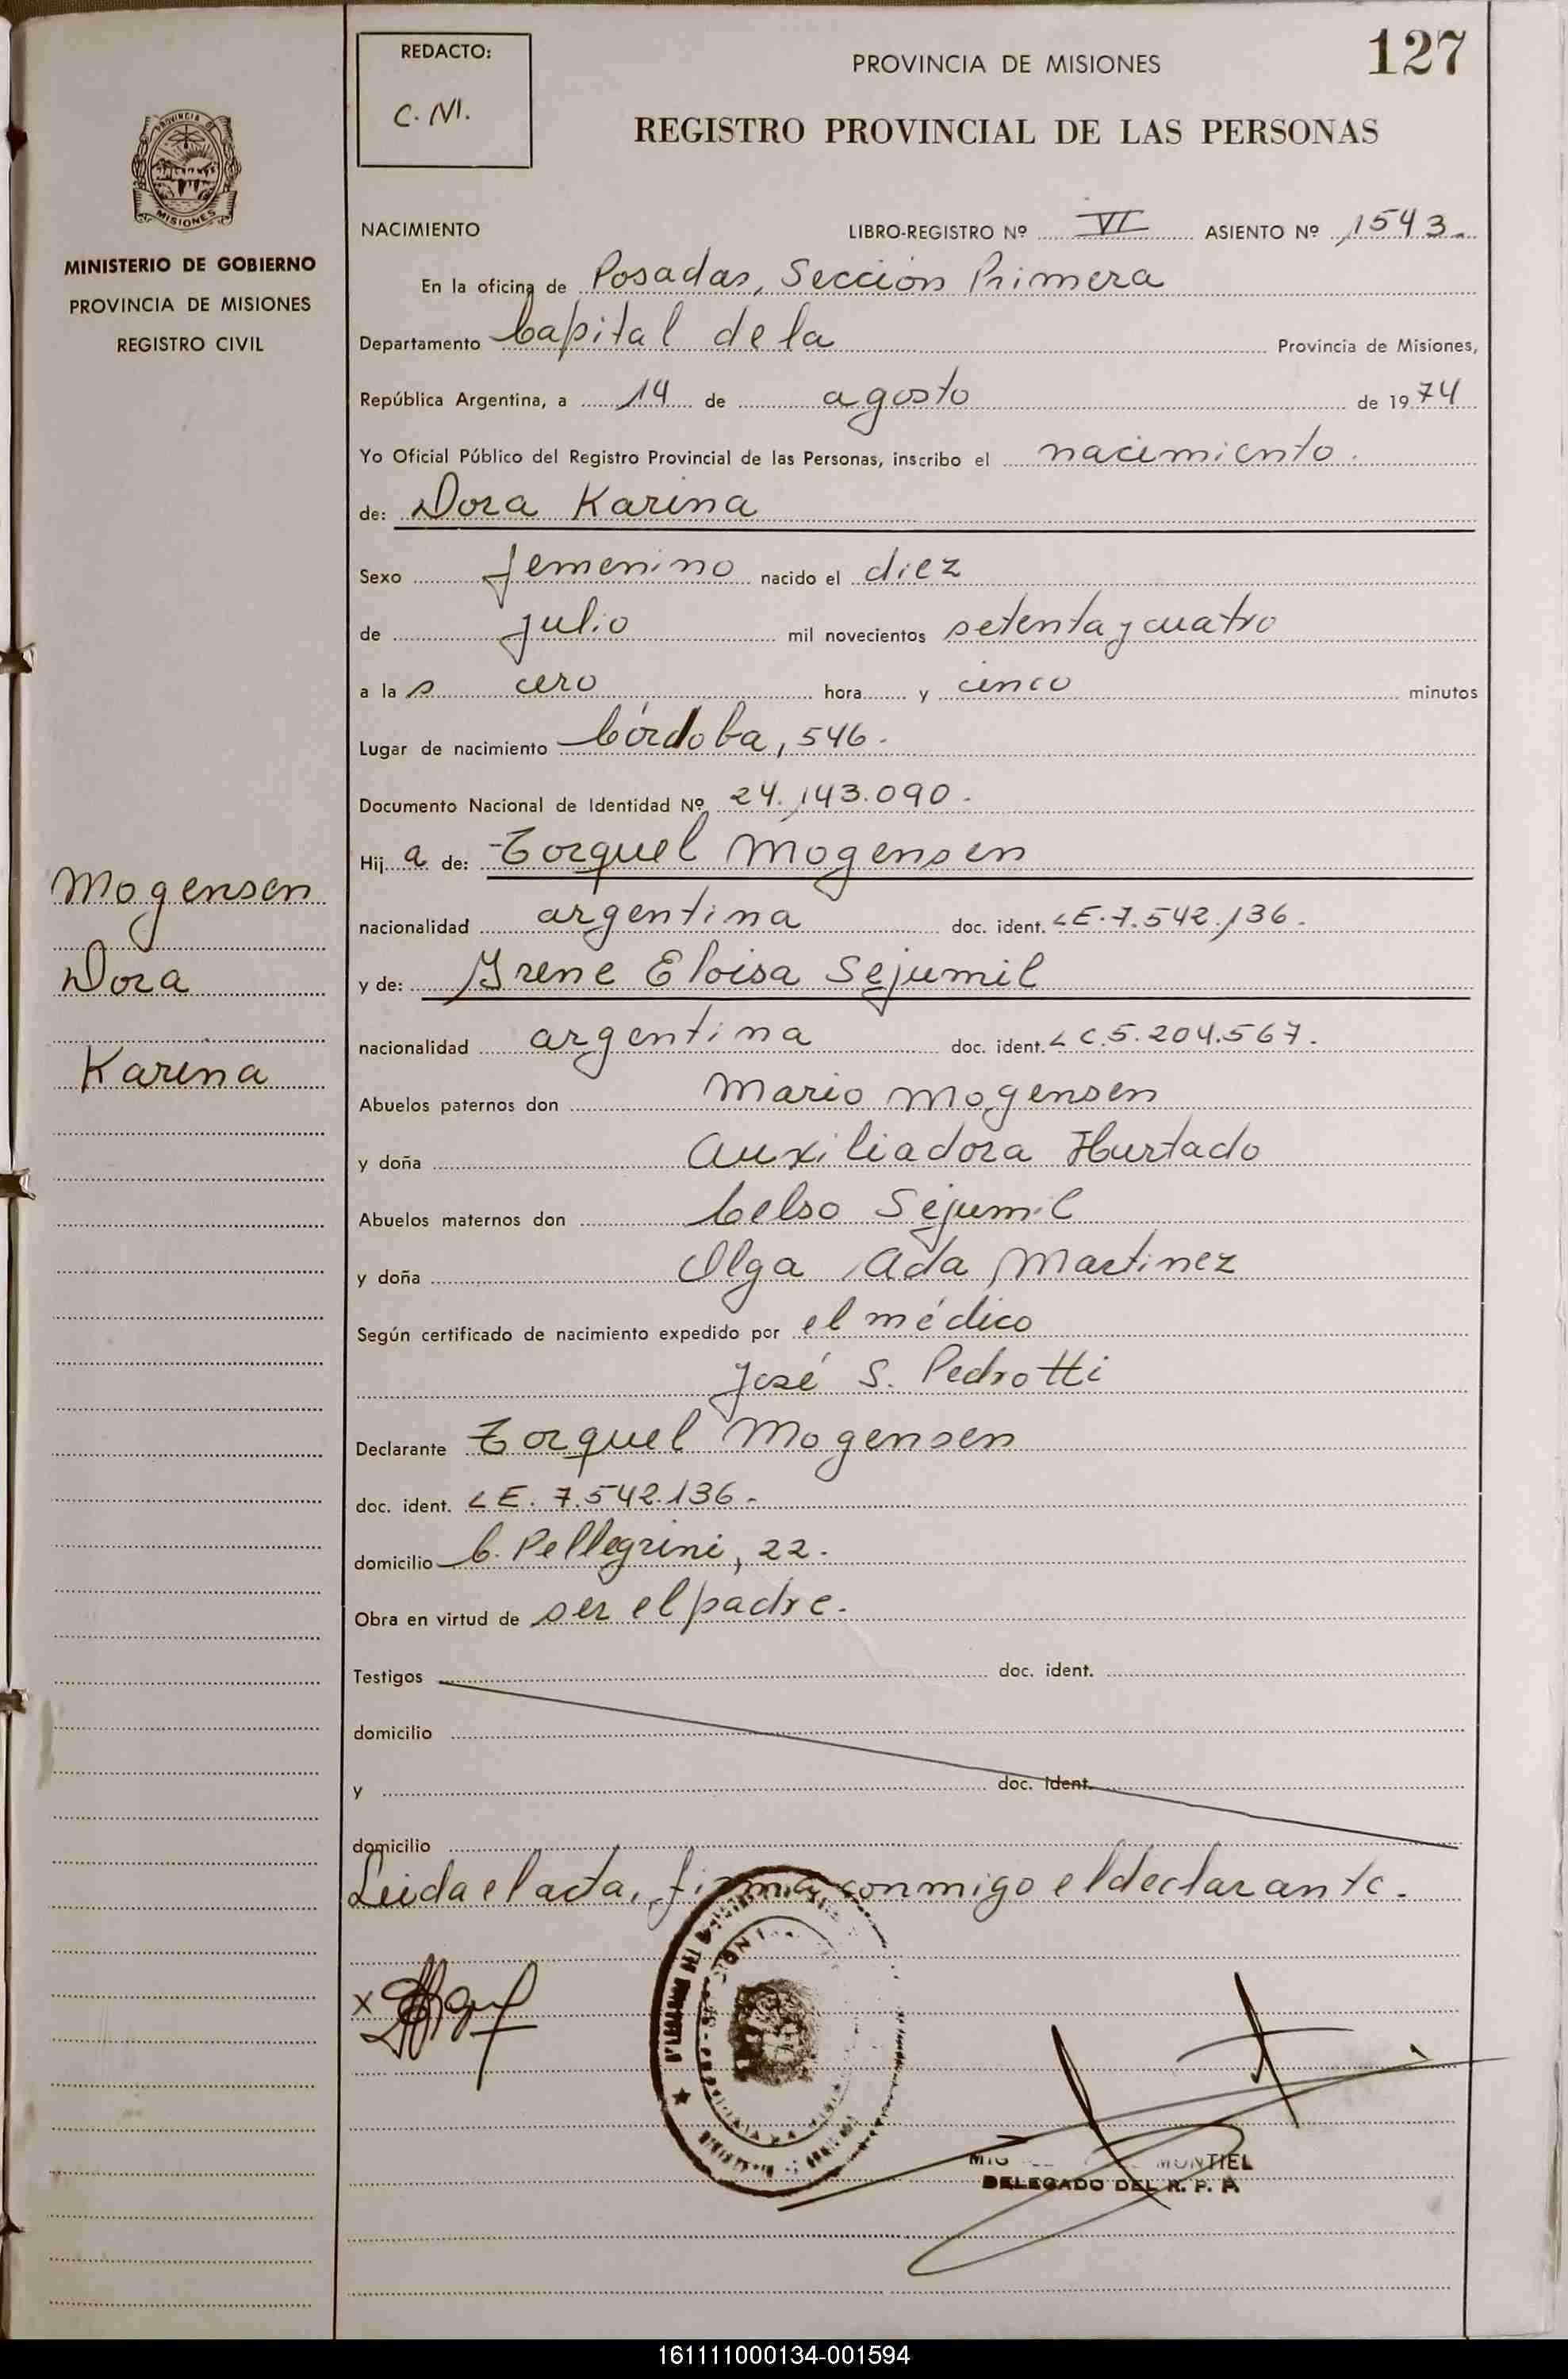 127
REDACTO:
C. M.
PROVINCIA DE MISIONES
REGISTRO PROVINCIAL DE LAS PERSONAS
PROVINCIA DE
MISIONES
MINISTERIO DE GOBIERNO
PROVINCIA DE MISIONES
REGISTRO CIVIL
NACIMIENTO LIBRO-REGISTRO Nº VI ASIENTO Nº 1543.
En la oficina de Posadas, Sección Primera
Departamento Capital de la Provincia de Misiones,
República Argentina, a 14 de agosto de 1974
Yo Oficial Público del Registro Provincial de las Personas, inscribo el nacimiento.
de: Dora Karina
Sexo femenino nacido el diez
de julio mil novecientos setenta y cuatro
a la s cero hora y cinco minutos
Lugar de nacimiento Córdoba, 546.
Documento Nacional de Identidad Nº 24.143.090.
Hij a de: Torquel Mogensen
nacionalidad argentina doc. ident. LE. 7.542.136.
y de: Irene Eloisa Sejumil
nacionalidad argentina doc. ident. L C. 5.204.567.
Abuelos paternos don Mario Mogensen
y doña Auxiliadora Hurtado
Abuelos maternos don Celso Sejumil
y doña Olga Ada Martinez
Según certificado de nacimiento expedido por el médico
José S. Pedrotti
Declarante Torquel Mogensen
doc. ident. LE. 7.542.136.
domicilio C. Pellegrini, 22.
Obra en virtud de ser el padre.
Testigos doc. ident.
domicilio
y doc. ident.
domicilio
Leida el acta, firma conmigo el declarante.
x
MONTIEL
DELEGADO DEL R. P. P.
Mogensen
Dora
Karina
161111000134-001594